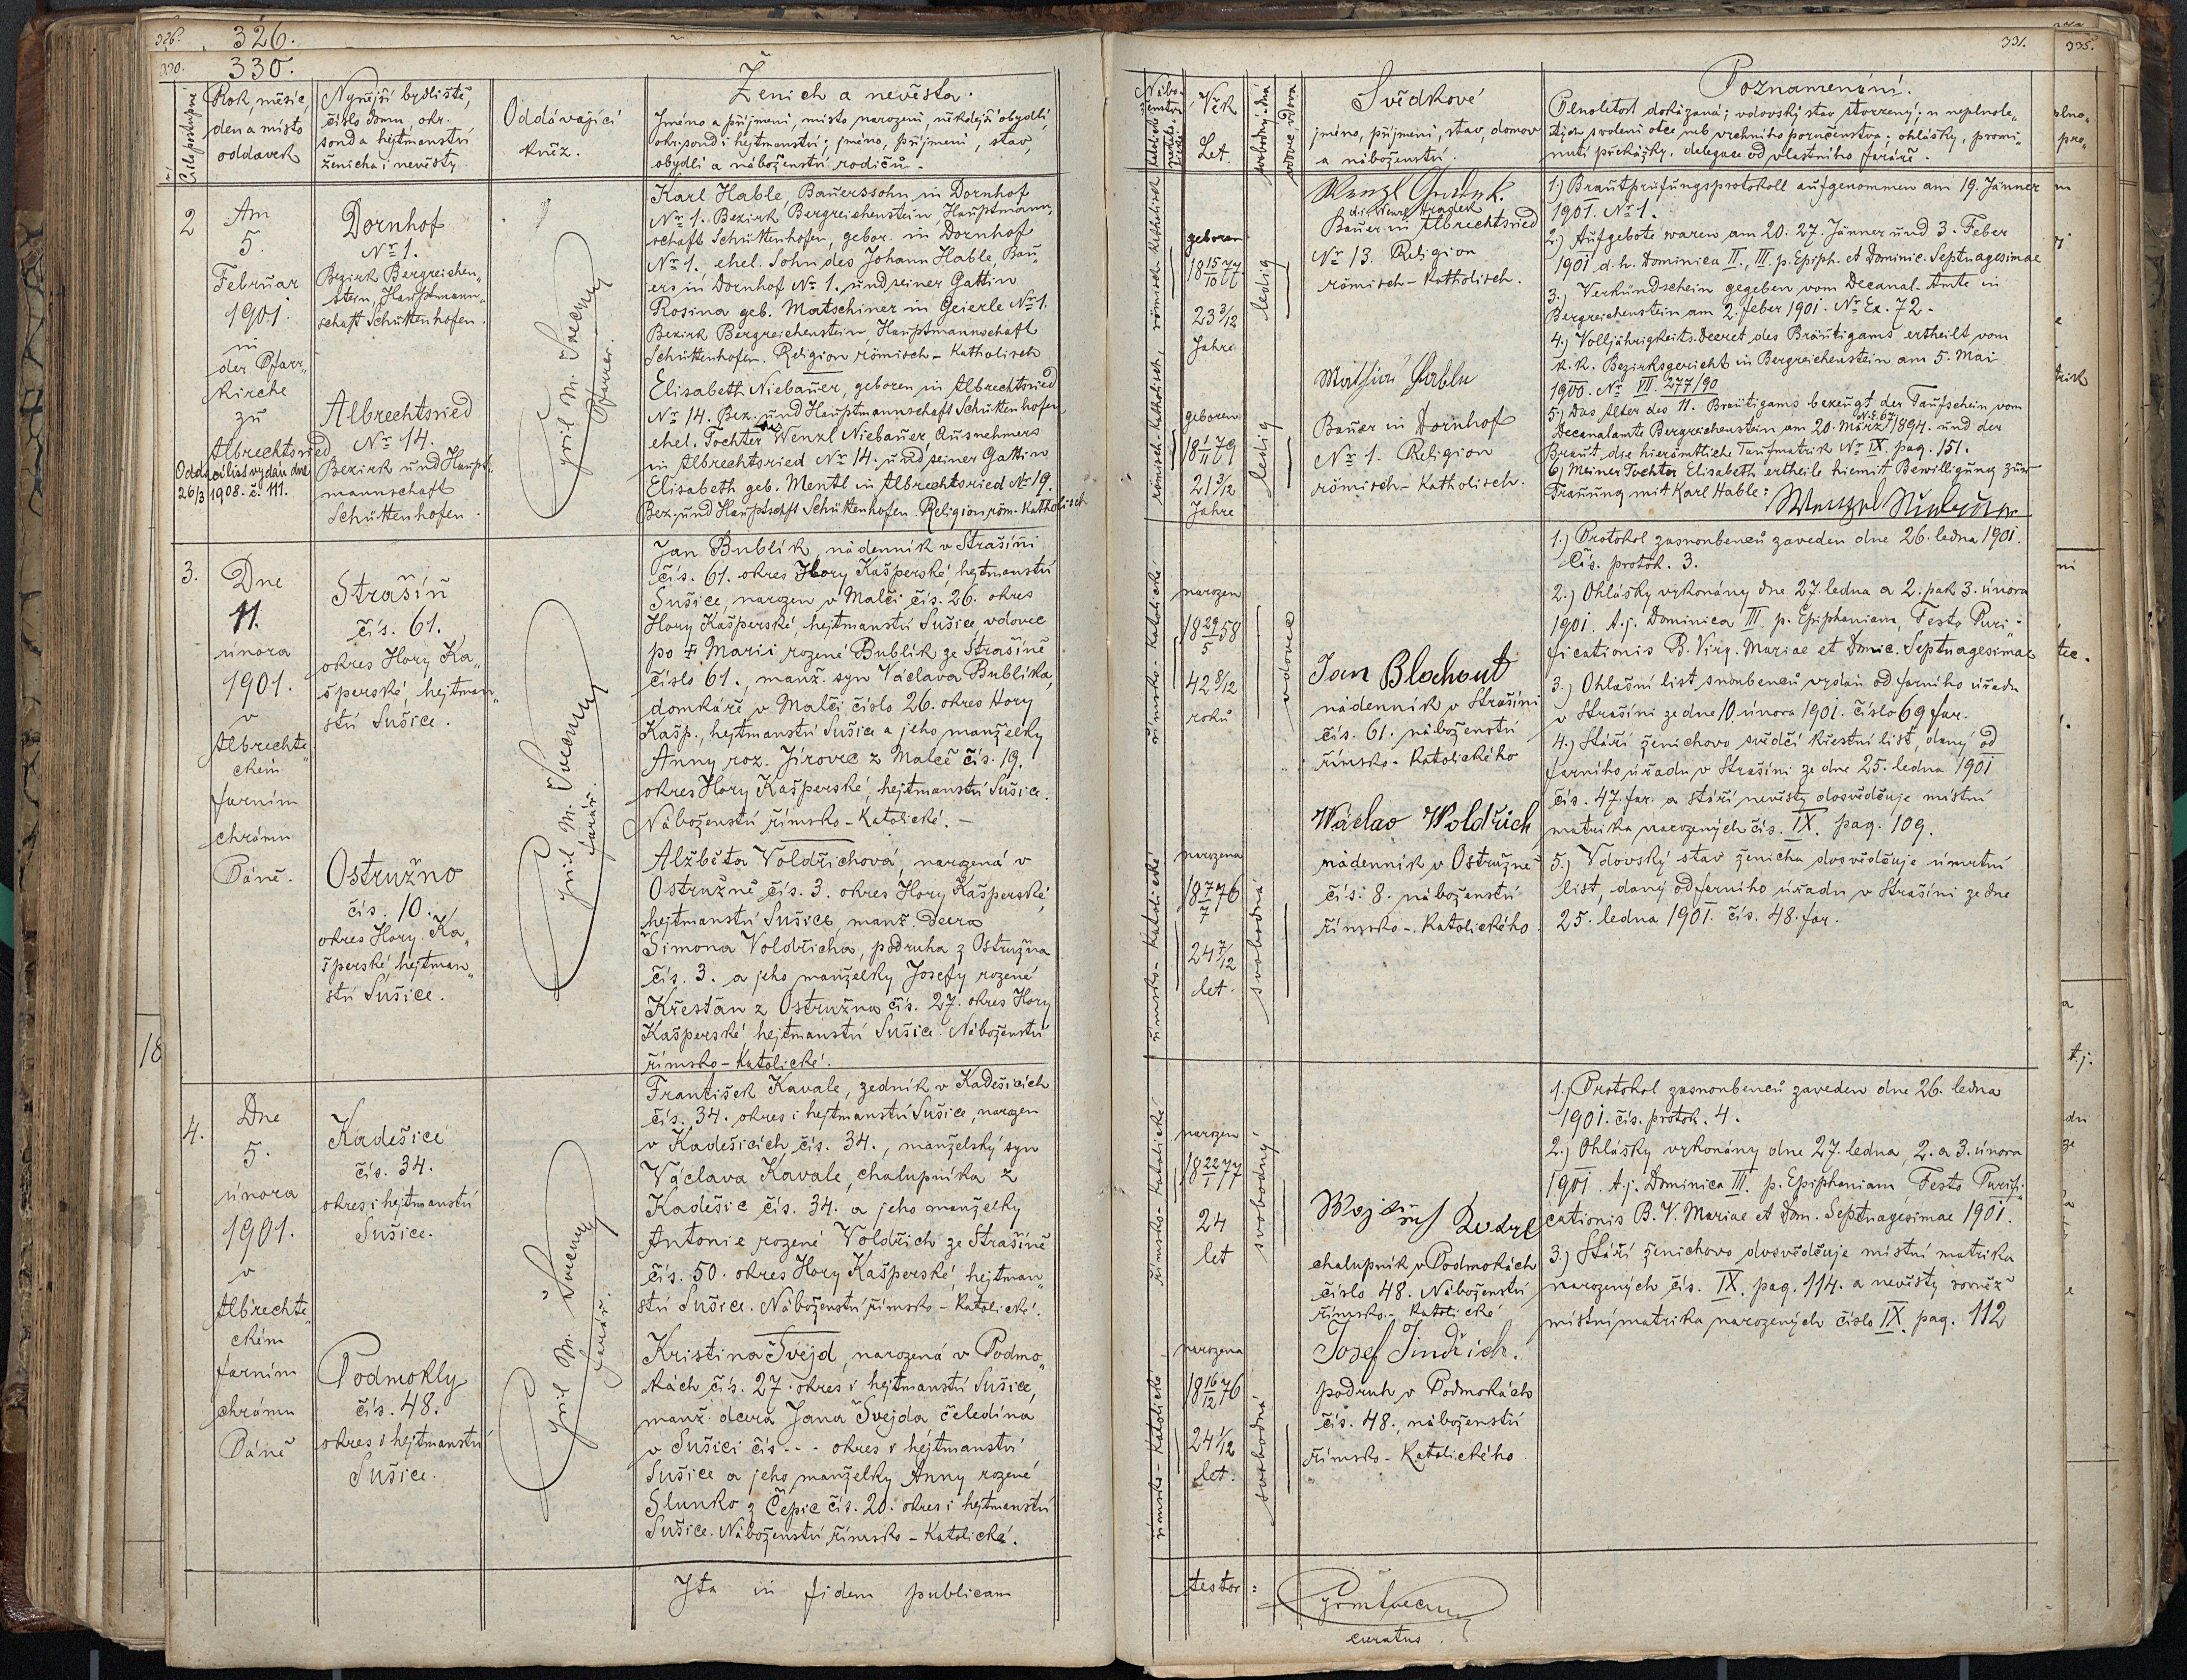 326.
326.
330.
330.
Číslo postupné
Rok, měsíc,
den a místo
oddavek
Nynější bydliště,
číslo domu, okr.
soud a hejtmanství
ženicha i nevěsty
Oddávající
kněz.
Ženich a nevěsta.
Jméno a příjmení, místo narození, někdejší obydlí,
okr. soud i hejtmanství; jméno, příjmení, stav,
obydlí a náboženství rodičů.
2
Am
5.
Februar
1901
in
der Pfarr„
kirche
zu
Albrechtsried
Oddací list vydán dne
26/3 1908. č. 111.
Dornhof
Nr 1.
Bezirk Bergreichen„
stein, Hauptmann„
schaft Schüttenhofen.
Albrechtsried
Nr 14.
Bezirk und Haupt„
mannschaft
Schüttenhofen.
Cyril M. Švecený
Pfarrer.
Karl Hable, Bauerssohn in Dornhof
Nr 1. Bezirk Bergreichenstein, Hauptmann„
schaft Schüttenhofen, gebor. in Dornhof
Nr 1., ehel. Sohn des Johann Hable, Bau„
ers in Dornhof Nr 1. und seiner Gattin
Rosina geb. Matschiner in Geierle Nr 1.
Bezirk Bergreichenstein, Hauptmannschaft
Schüttenhofen. Religion römisch-katholisch
Elisabeth Niebauer, geboren in Albrechtsried
Nr 14. Bez. und Hauptmannschaft Schüttenhofen,
ehel. Tochter des Wenzl Niebauer Ausnehmers
in Albrechtsried Nr 14. und seiner Gattin
Elisabeth geb. Mentl in Albrechtsried Nr 19.
Bez. und Hauptschft Schüttenhofen. Religion röm. katholisch
3.
Dne
11.
února
1901.
v
Albrechte„
chém
farním
chrámu
Páně.
Strašín
čís. 61.
okres Hory Ka„
šperské, hejtman„
ství Sušice.
Ostružno
čís. 10.
okres Hory Ka„
šperské, hejtman„
ství Sušice.
Cyril M. Švecený
farář.
Jan Bublík, nádenník v Strašíni
čís. 61. okres Hory Kašperské, hejtmanství
Sušice, narozen v Malči čís. 26. okres
Hory Kašperské, hejtmanství Sušice, vdovec
po † Marii rozené Bublík ze Strašíně
číslo 61., manž. syn Václava Bublíka,
domkáře v Malči číslo 26. okres Hory
Kašp., hejtmanství Sušice a jeho manželky
Anny roz. Jírovec z Malče čís. 19.
okres Hory Kašperské, hejtmanství Sušice.
Náboženství římsko-katolické. –
Alžběta Voldřichová, narozená v
Ostružně čís. 3. okres Hory Kašperské,
hejtmanství Sušice, manž. dcera
Šimona Voldřicha, podruha z Ostružna
čís. 3. a jeho manželky Josefy rozené
Křesťan z Ostružna čís. 27. okres Hory
Kašperské, hejtmanství Sušice. Náboženství
římsko-katolické.
4.
Dne
5.
února
1901.
v
Albrechte„
chém
farním
chrámu
Páně
Kadešice
čís. 34.
okres i hejtmanství
Sušice.
Podmokly
čís. 48.
okres i hejtmanství
Sušice.
Cyril M. Švecený
farář.
František Kavale, zedník v Kadešicích
čís. 34. okres i hejtmanství Sušice, narozen
v Kadešicích čís. 34., manželský syn
Václava Kavale, chalupníka z
Kadešic čís. 34. a jeho manželky
Antonie rozené Voldřich ze Strašíně
čís. 50. okres Hory Kašperské, hejtman„
ství Sušice. Náboženství římsko-katolické.
Kristina Švejd, narozená v Podmo„
klách čís. 27. okres i hejtmanství Sušice,
manž. dcera Jana Švejda čeledína
v Sušici čís. . . . okres i hejtmanství
Sušice a jeho manželky Anny rozené
Slunko z Čepic čís. 20. okres i hejtmanství
Sušice. Náboženství římsko-katolické.
Ita in fidem publicam
18
331.
335.
Nábo„
ženství
Věk
Let.
svobodný-dná
vdovec, vdova
Svědkové
jméno, příjmení, stav, domov
a náboženství.
Poznamenání.
Plnoletost dokázaná; vdovský stav stvrzený; u neplnole„
tých svolení otce neb vrchního poručenstva; ohlášky, promi„
nutí překážky, delegace od vlastního faráře.
römisch-katholisch
geboren
18 15/10 77
23 3/12
Jahre
ledig
d. i. Wenzl Hradek
Bauer in Albrechtsried
Nr 13. Religion
römisch-katholisch.
römisch-katholisch
geboren
18 1/11 79
21 3/12
Jahre
ledig
Mathias Hable
Bauer in Dornhof
Nr 1. Religion
römisch-katholisch.
1.) Brautprüfungsprotokoll aufgenommen am 19. Jänner
1901. Nr 1.
2.) Aufgebote waren am 20. 27. Jänner und 3. Feber
1901 d. h. Dominica II., III. p. Epiph. et Dominic. Septuagesimae
3.) Verkündschein gegeben vom Decanal-Amte in
Bergreichenstein am 2. Feber 1901. Nr Ex. 72.
4.) Volljährigkeits-Decret des Bräutigams ertheilt vom
k. k. Bezirksgericht in Bergreichenstein am 5. Mai
1900. Nr VII. 277/90
5.) Das Alter des H. Bräutigams bezeugt der Taufschein vom
Decanalamte Bergreichenstein am 20. März 1894. N. E. 67. und der
Braut die hierämtliche Taufmatrik Nr IX. pag. 151.
6) Meiner Tochter Elisabeth ertheile hiemit Bewilligung zur
Trauung mit Karl Hable:
Wenzel Niebauer
římsko-katolické
narozen
18 29/5 58
42 8/12
roků
vdovec
Jan Blahout
nádenník v Strašíni
čís. 61. náboženství
římsko-katolického
římsko-katolické
narozena
18 7/7 76
24 7/12
let.
svobodná
Wáclav Woldřich
nádenník v Ostružně
čís. 8. náboženství
římsko-katolického
1.) Protokol zasnoubenců zaveden dne 26. ledna 1901.
Čís. protok. 3.
2.) Ohlášky vykonány dne 27. ledna a 2. pak 3. února
1901. t. j. Dominica III. p. Epiphaniam, Festo Puri„
ficationis B. Virg. Mariae et Domic. Septuagesimae
3.) Ohlašní list snoubenců vydán od farního úřadu
v Strašíni ze dne 10. února 1901. číslo 69 far.
4.) Stáří ženichovo svědčí křestní list, daný od
farního úřadu v Strašíni ze dne 25. ledna 1901
čís. 47. far. a stáří nevěsty dosvědčuje místní
matrika narozených čís. IX. pag. 109.
5.) Vdovský stav ženicha dosvědčuje úmrtní
list, daný od farního úřadu v Strašíni ze dne
25. ledna 1901. čís. 48. far.
římsko-katolické
narozen
18 22/1 77
24
let
svobodný
chalupník v Podmoklách
číslo 48. Náboženství
římsko-katolické
římsko-katolické
narozena
18 16/12 76
24 1/12
let.
svobodná
Josef Jindřich.
podruh v Podmoklách
čís. 48., náboženství
římsko-katolického.
1.) Protokol zasnoubenců zaveden dne 26. ledna
1901. čís. protok. 4.
2.) Ohlášky vykonány dne 27. ledna, 2. a 3. února
1901. t. j. Dominica III. p. Epiphaniam Festo Purifi„
cationis B. V. Mariae et Dom. Septuagesimae 1901.
3.) Stáří ženichovo dosvědčuje místní matrika
narozených čís. IX. pag. 114. a nevěsty rovněž
místní matrika narozených číslo IX. pag. 112
testor:
curatus